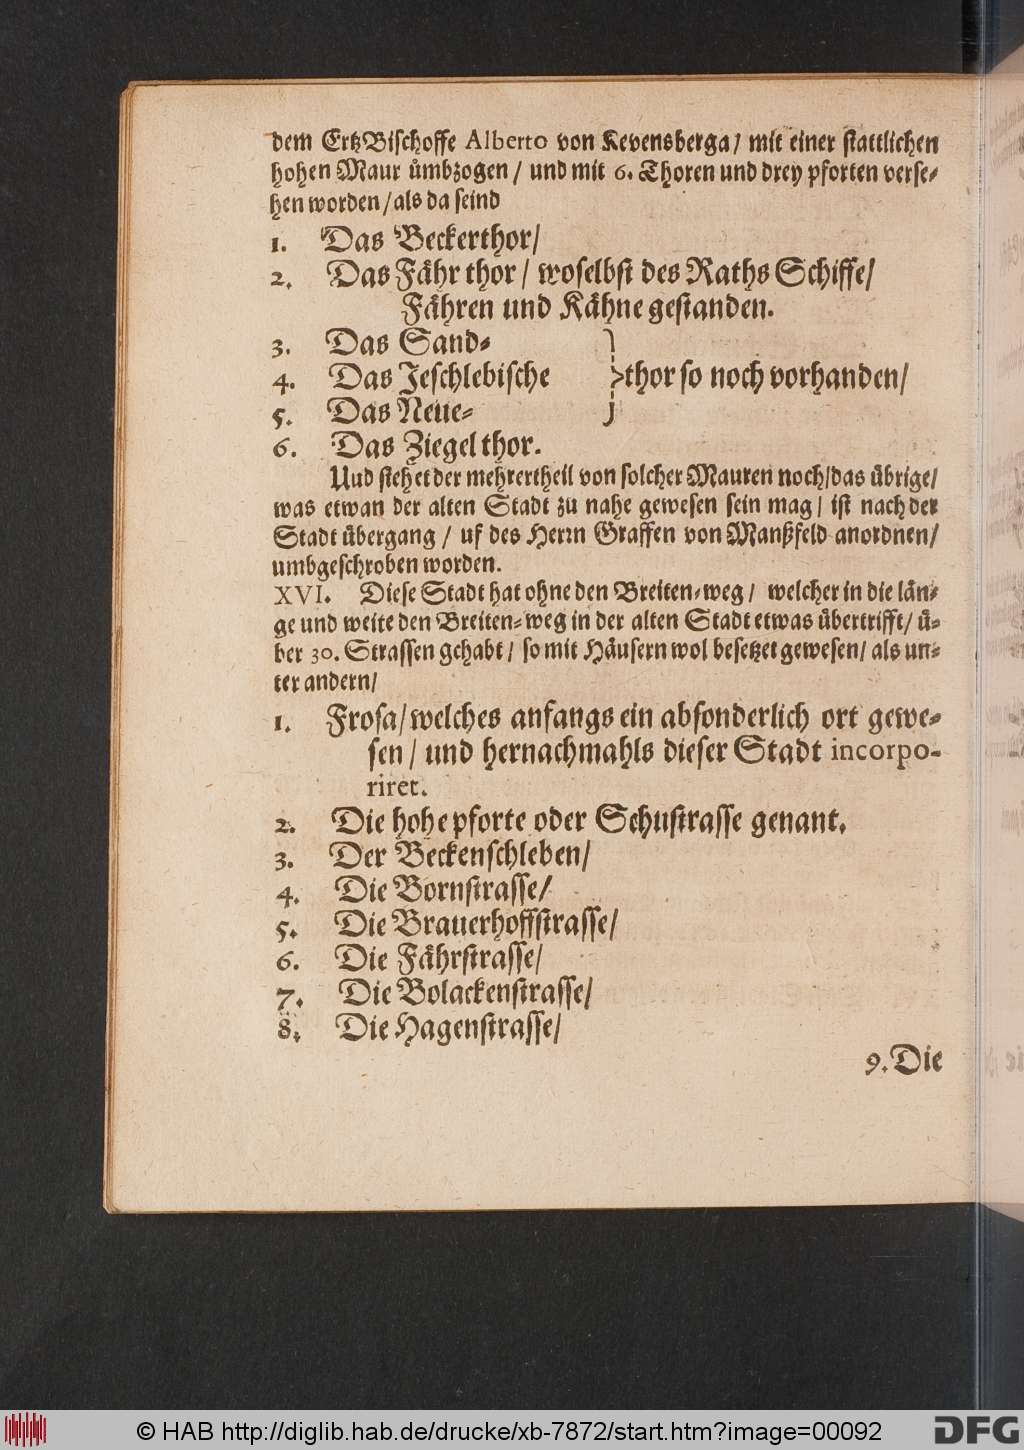 dem ErtzBischoffe Alberto von Kevensberga/ mit einer stattlichen
hohen Maur ůmbzogen / und mit 6. Thoren und drey pforten verse-
hen worden / als da seind
1. Das Beckerthor/
2. Das Fåhr thor / woselbst des Raths Schiffe/
Fåhren und Kåhne gestanden.
3. Das Sand-
4. Das Jeschlebische thor so noch vorhanden/
5. Das Neue-
6. Das Ziegel thor.
Uud stehet der mehrertheil von solcher Mauren noch/das ůbrige/
was etwan der alten Stadt zu nahe gewesen sein mag / ist nach der
Stadt ůbergang / uf des Herrn Graffen von Manßfeld anordnen/
umbgeschroben worden.
XVI. Diese Stadt hat ohne den Breiten-weg / welcher in die lån-
ge und weite den Breiten-weg in der alten Stadt etwas ůbertrifft/ ů-
ber 30. Strassen gehabt / so mit Håusern wol besetzet gewesen/ als un-
ter andern/
1. Frosa/welches anfangs ein absonderlich ort gewe-
sen / und hernachmahls dieser Stadt incorpo-
riret.
2. Die hohe pforte oder Schustrasse genant.
3. Der Beckenschleben/
4. Die Bornstrasse/
5. Die Brauerhoffstrasse/
6. Die Fåhrstrasse/
7. Die Bolackenstrasse/
8. Die Hagenstrasse/
9. Die
© HAB http://diglib.hab.de/drucke/xb-7872/start.htm?image=00092
DFG